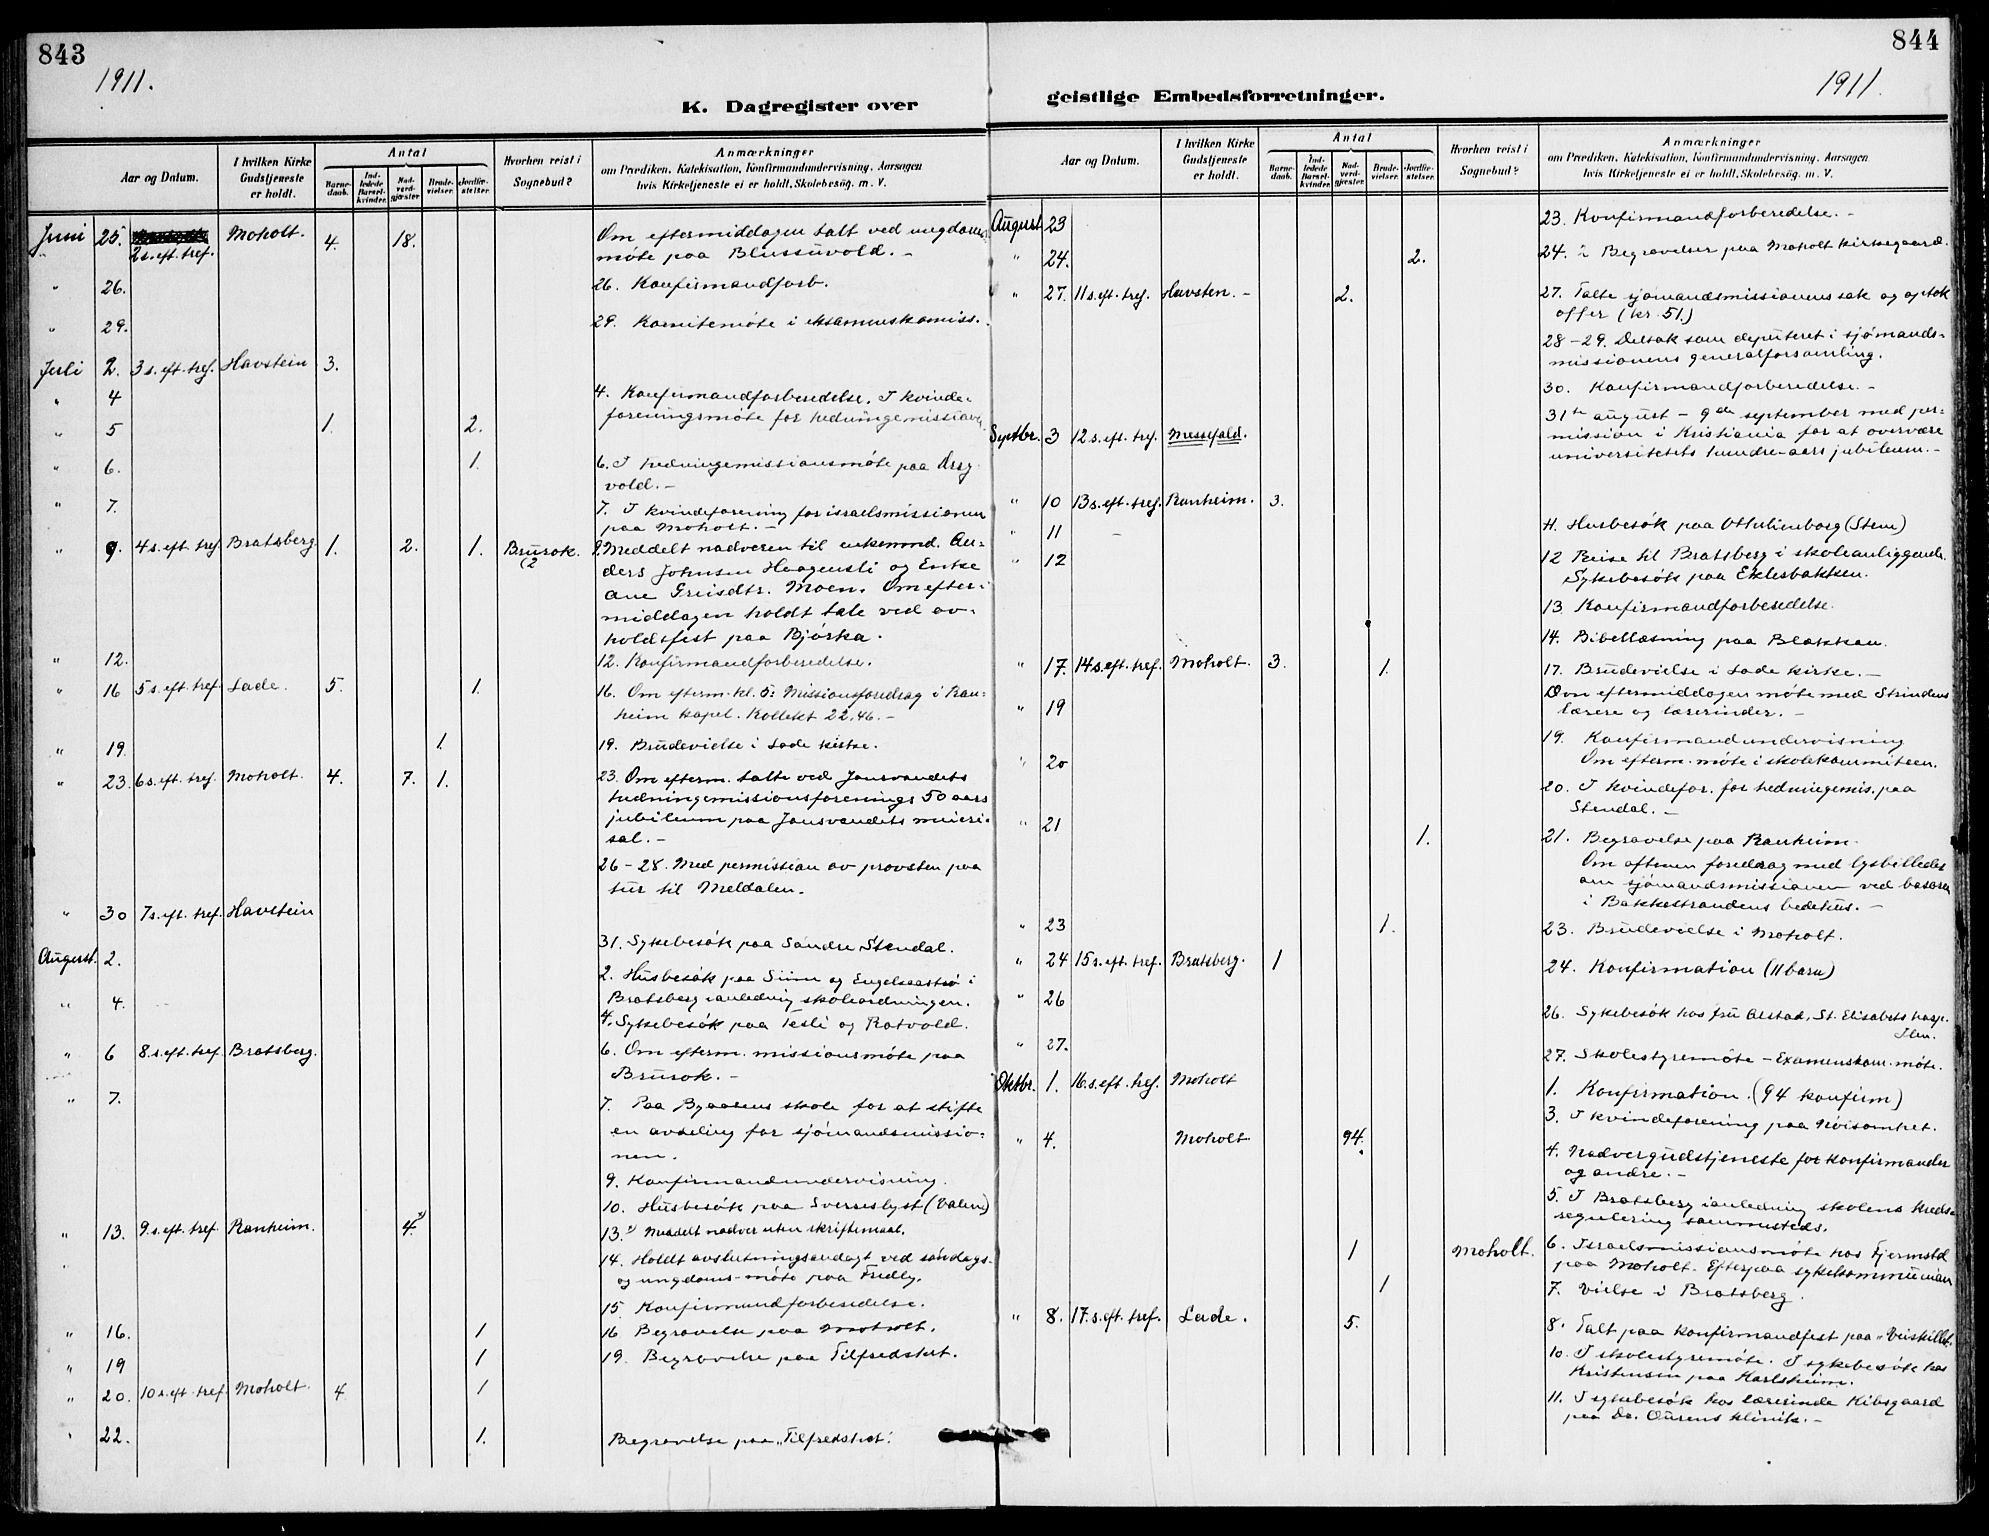 843
1911.
K. Dagregister over
Aar og Datum.
I hvilken Kirke Gudstjeneste er holdt.
Antal
Barnedaab.
Indledede Barselkvinder.
Nadverdgjæster.
Brudevielser.
Jordfæstelser.
Hvorhen reist i Sognebud?
Anmærkninger
om Prædiken, Katekisation, Konfirmandundervisning, Aarsagen
hvis Kirketjeneste ei er holdt, Skolebesøg, m. V.
Juni 25. 2 s. eft. tref. Moholt. 4. 18. Om eftermiddagen talt ved ungdoms-
møte paa Blussuvold. –
" 26. 26. Konfirmandforb.
" 29. 29. Komitemøte i eksamenskomiss.
Juli 2. 3 s. eft. tref. Havstein 3.
" 4 4. Konfirmandforberedelse. I kvinde-
foreningsmøte for hedningemissionen.
" 5 1. 2.
" 6. 1. 6. I hedningemissionsmøte paa Drag-
vold. –
" 7. 7. I kvindeforening for israelsmissionen
paa Moholt. –
" 9. 4 s. eft. tref. Bratsberg 1. 2. 1. Brurok. (2 9. Meddelt nadveren til enkemand. An-
ders Johnsen Haagensli og Enke
Ane Moen. Om efter-
middagen holdt tale ved av-
holdsfest paa Bjørka.
" 12. 12. Konfirmandforberedelse.
" 16 5 s. eft. tref. Lade. 5. 1. 16. Om efterm. kl. 5: Missionsforedrag i Ran-
heim kapel. Kollekt 22,46. –
" 19. 1. 19. Brudevielse i Lade kirke.
" 23. 6 s. eft. tref. Moholt. 4. 7. 1. 23. Om efterm. talte ved Jonsvandets
hedningemissionsforenings 50 aars
jubilæum paa Jonsvandets
sal. –
26 – 28. Med permission av provsten paa
tur til Meldalen.
" 30 7 s. eft. tref. Havstein
31. Sykebesøk paa Søndre Stendal.
August. 2. 2. Husbesøk paa og i
Bratsberg i anledning skoleordningen.
" 4. 4. Sykebesøk paa Tesli og Rotvold.
" 6 8 s. eft. tref. Bratsberg. 6. Om efterm. missionsmøte paa
Brurok. –
" 7. 7. Paa Byaasens skole for at stifte
en avdeling for sjømandsmissio-
nen.
9. Konfirmandundervisning.
10. Husbesøk paa Sverreslyst (Valen)
" 13. 9 s. eft. tref. Ranheim. 4. 13. Meddelt nadver uten skriftemaal.
14. Holdt avslutningsandagt ved søndags-
og ungdoms-møte paa Fredly.
15 Konfirmandforberedelse.
" 16. 1 16 Begravelse paa Moholt.
" 19 1 19. Begravelse paa Tilfredshet.
" 20. 10 s. eft. tref. Moholt. 4. 1
" 22. 1. Begravelse paa „Tilfredshet".
844
1911.
geistlige Embedsforretninger.
Aar og Datum.
I hvilken Kirke Gudstjeneste er holdt.
Antal
Barnedaab.
Indledede Barselkvinder.
Nadverdgjæster.
Brudevielser.
Jordfæstelser.
Hvorhen reist i Sognebud?
Anmærkninger
om Prædiken, Katekisation, Konfirmandundervisning, Aarsagen
hvis Kirketjeneste ei er holdt, Skolebesøg, m. V.
August 23 23. Konfirmandforberedelse. –
" 24. 2. 24. 2 Begravelser paa Moholt kirkegaard.
" 27. 11 s. eft. tref. Havsten. – 2. 27. Talte sjømandsmissionens sak og optok
offer (kr. 51.)
28 – 29. Deltok som deputeret i sjømands-
missionens generalforsamling.
30. Konfirmandforberedelse. –
31te august – 9de september med per-
mission i Kristiania for at overvære
universitetets hundre-aars jubilæum. –
Septbr. 3 12 s. eft. tref. Messefald.
" 10 13 s. eft. tref. Ranheim. 3.
" 11 11. Husbesøk paa Ottilienborg (Stene)
" 12 12 Reise til Bratsberg i skoleanliggende.
Sykebesøk paa Eklesbakken.
13 Konfirmandforberedelse.
14. Bibellæsning paa Blækkan.
" 17. 14 s. eft. tref. Moholt. 3. 1. 17. Brudevielse i Lade kirke. –
Om eftermiddagen møte med Strindens
lærere og lærerinder. –
" 19 19. Konfirmandundervisning
Om efterm. møte i skolekommiteen.
" 20 20. I kvindefor. for hedningemis. paa
Stendal. –
" 21 1. 21. Begravelse paa Ranheim.
Om aftenen foredrag med lysbilleder
om sjømandsmissionen ved basaren
i Bakkestrandens bedehus. –
" 23 1. 23. Brudevielse i Moholt.
" 24 15 s. eft. tref. Bratsberg. 1 24. Konfirmation (11 barn)
" 26 26. Sykebesøk hos fru Alstad, St. Elisabets hosp.
Ilen.
" 27. 27. Skolestyremøte – Examenskom. møte.
Oktbr. 1. 16. s. eft. tref. Moholt 1. Konfirmation. (94 konfirm)
3. I kvindeforening paa Nøisomhet.
" 4. Moholt 94. 4. Nadvergudstjeneste for konfirmander
og andre. –
5. I Bratsberg i anledning skolens kreds-
regulering sammesteds.
1 Moholt. 6. Israelsmissionsmøte hos Fjermstd
paa Moholt. Efterpaa sykekommunion
1 7. Vielse i Bratsberg.
" 8. 17. s. eft. tref. Lade. 5. 8. Talt paa konfirmandfest paa „Veiskillet.
10. I skolestyremøte. I sykebesøk hos
Kristensen paa Karlsheim.
11. I sykebesøk hos lærerinde Kibsgaard
paa Dr. Ourens klinik. –